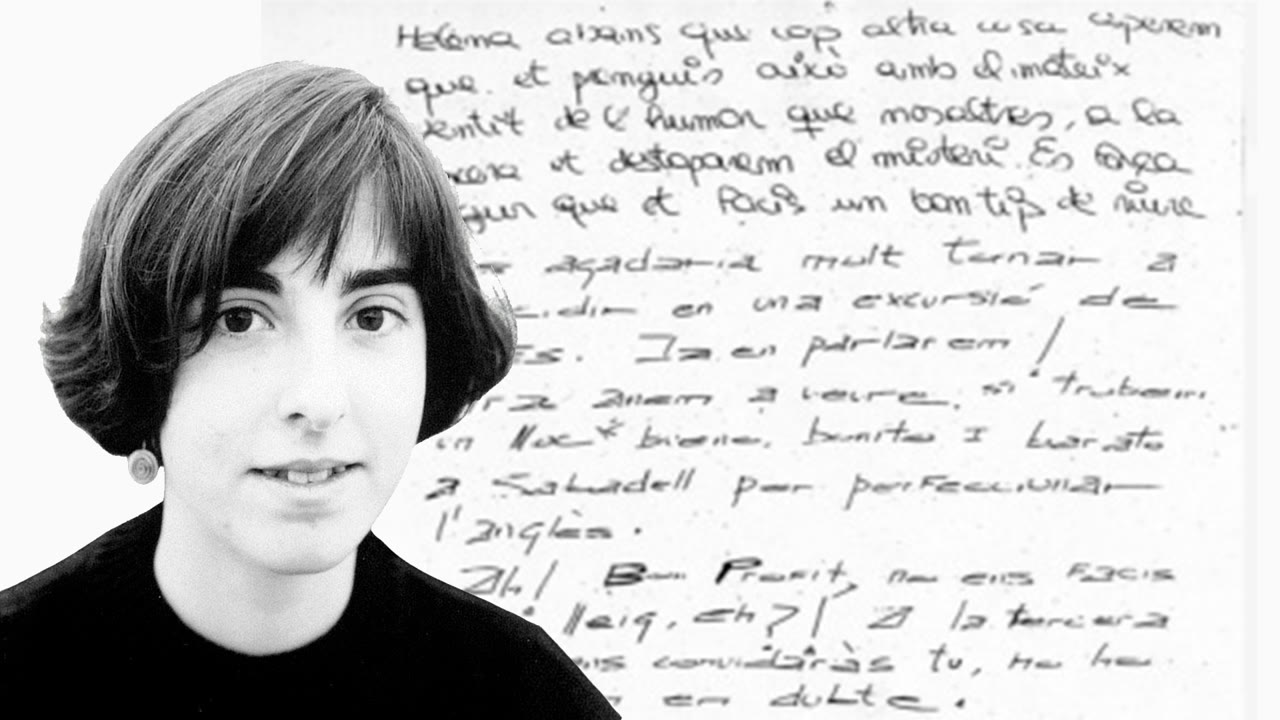 Helena abans que cap altra cosa esperem
que et prenguis això amb el mateix
sentit de l'humor que nosaltres, a la
et destaparem el misteri. Es força
que et facis un bon tip de riure
agadaria molt tornar a
en una excursió de
Ja en parlarem!
anem a veure si trobem
un lloc* bieno, bonito I barato
a Sabadell per perfeccionar
l'anglès.
Ah! Bon Profit, no ens facis
lleig, eh?! A la tercera
convidaràs tu, no ho
en dubte.